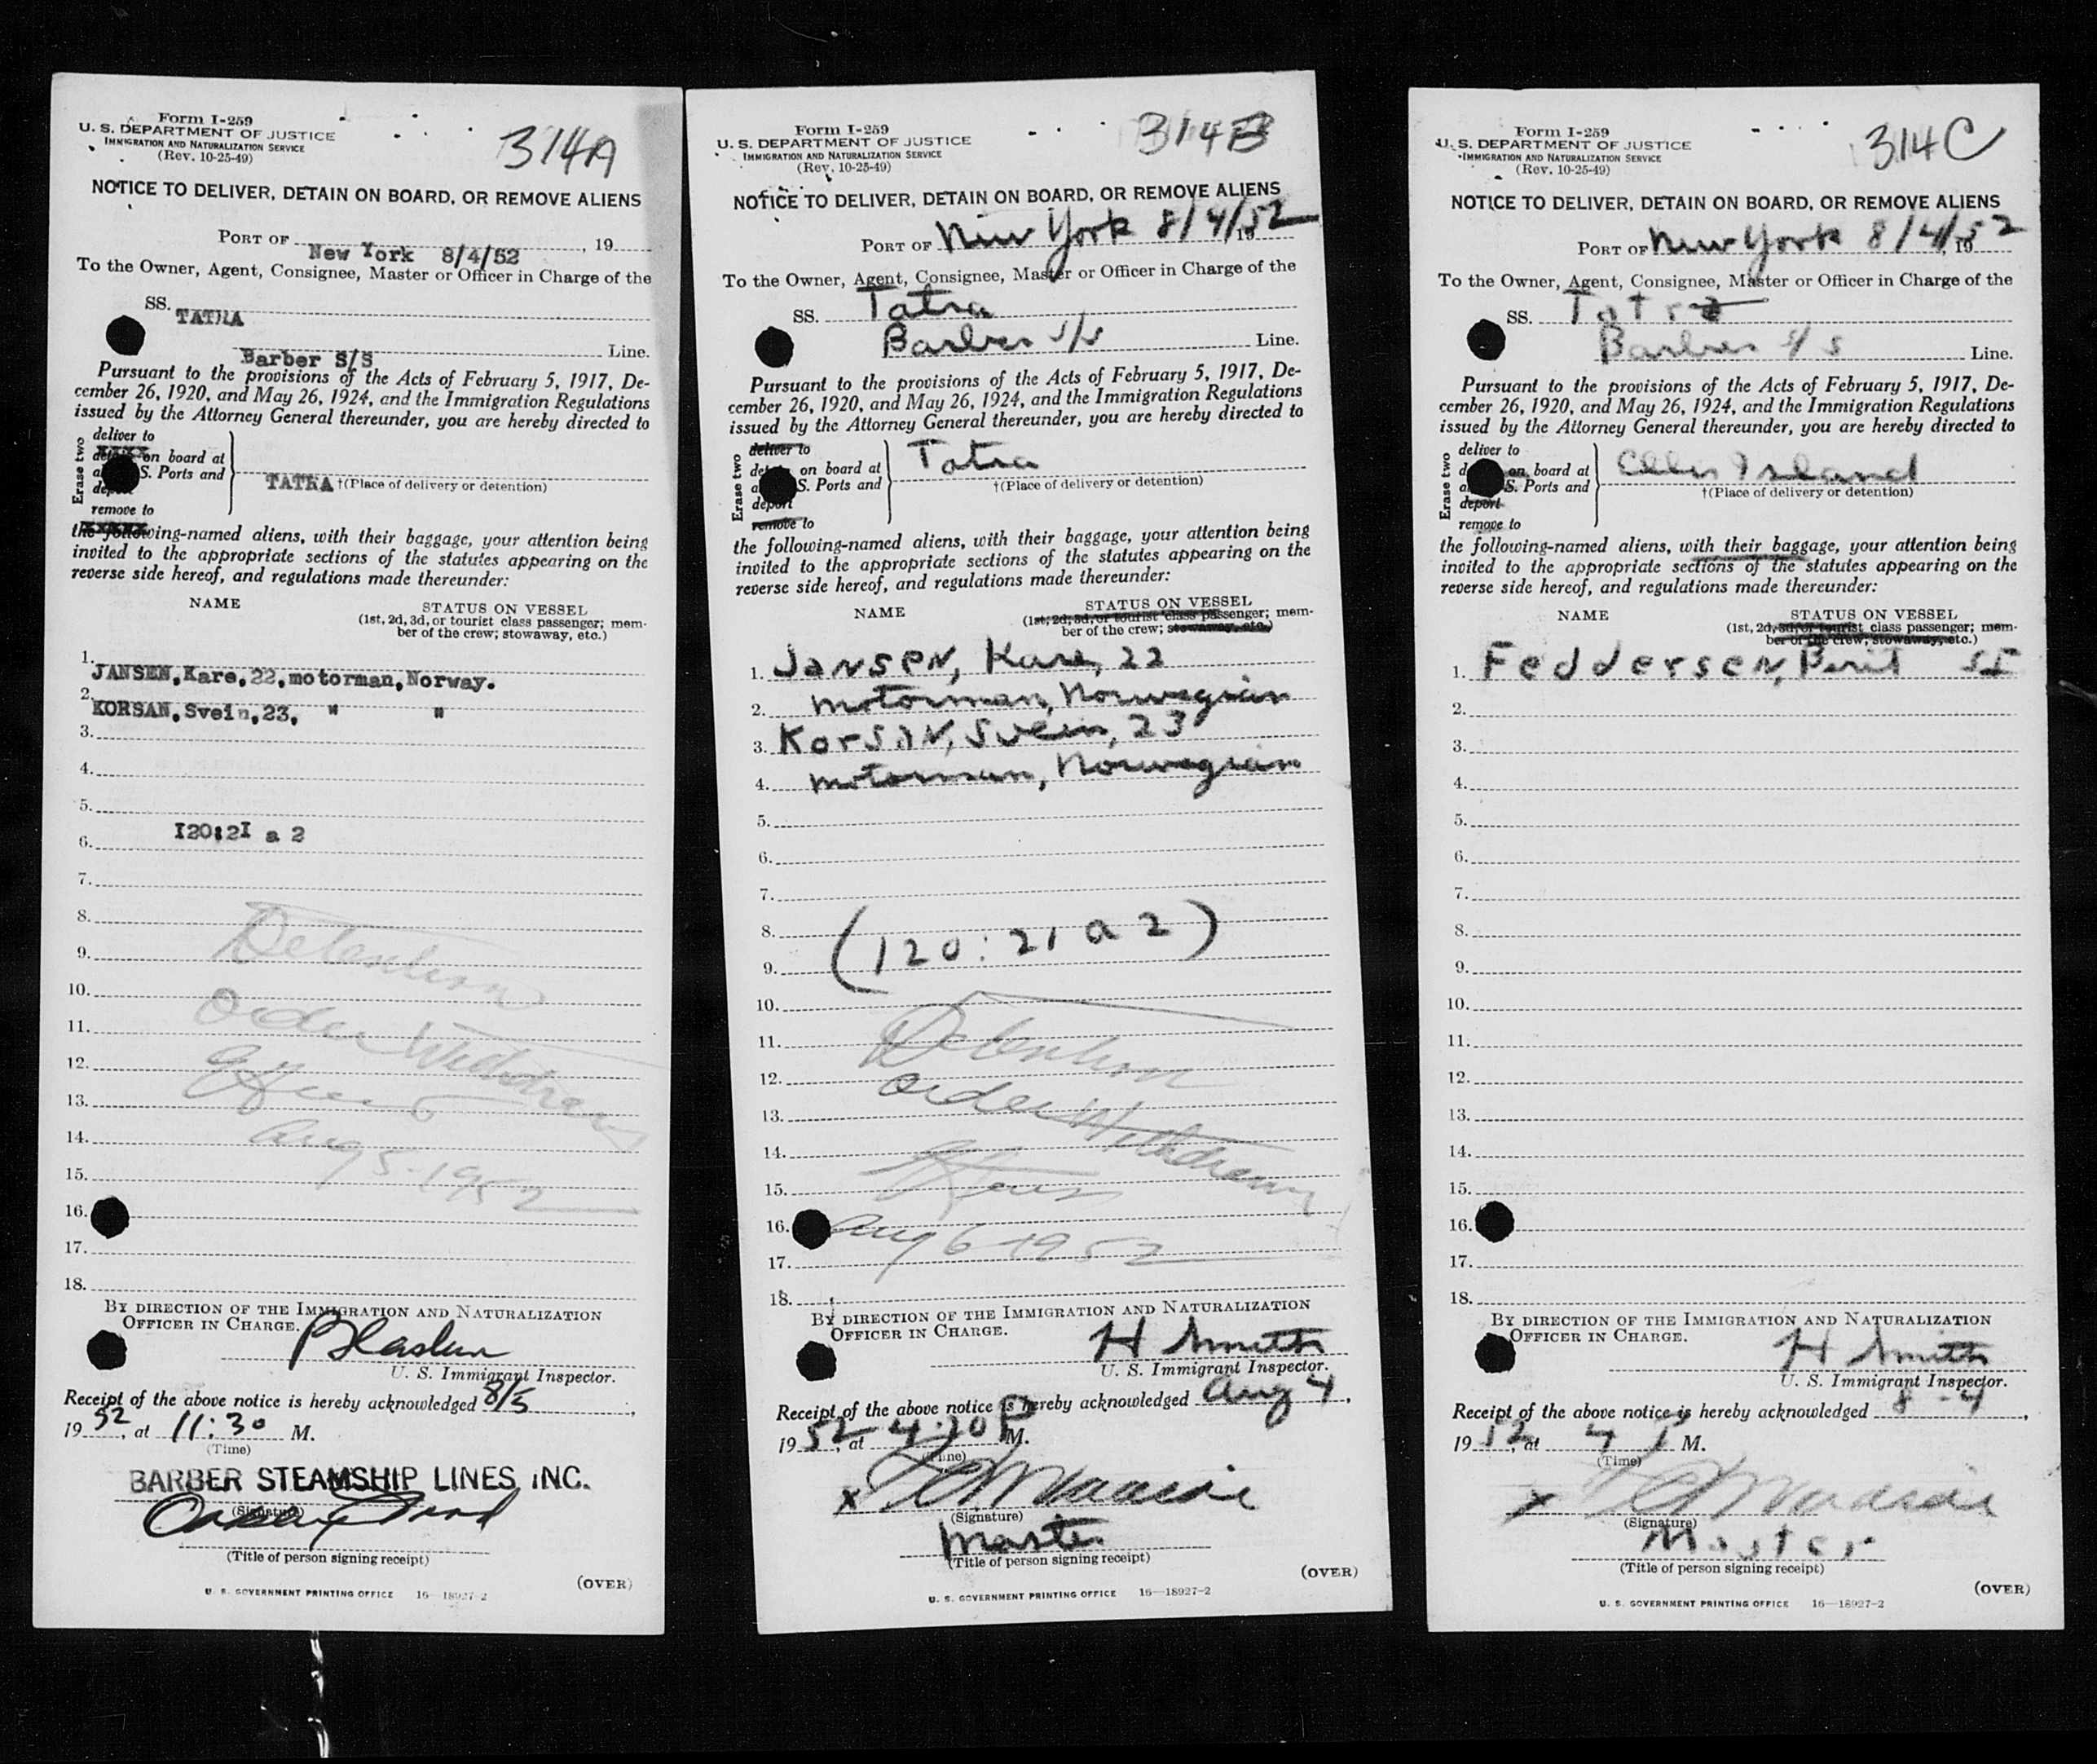 Form I-259
U. S. DEPARTMENT OF JUSTICE
IMMIGRATION AND NATURALIZATION SERVICE
(Rev. 10-25-49)
314A
NOTICE TO DELIVER, DETAIN ON BOARD, OR REMOVE ALIENS
PORT OF New York 8/4/52, 19
To the Owner, Agent, Consignee, Master or Officer in Charge of the
SS. TATRA
Barber S/S Line.
Pursuant to the provisions of the Acts of February 5, 1917, De-
cember 26, 1920, and May 26, 1924, and the Immigration Regulations
issued by the Attorney General thereunder, you are hereby directed to
Erase two
deliver to
on board at
S. Ports and
remove to
TATRA †(Place of delivery or detention)
the following-named aliens, with their baggage, your attention being
invited to the appropriate sections of the statutes appearing on the
reverse side hereof, and regulations made thereunder:
NAME
STATUS ON VESSEL
(1st, 2d, 3d, or tourist class passenger; mem-
ber of the crew; stowaway, etc.)
1. JANSEN, Kare, 22, motorman, Norway.
2. KORSAN, Svein, 23, " "
3.
4.
5.
6. I20:2I a 2
7.
8.
9. Detention
10.
11. Order Withdrawn
12.
13.
14. Aug 5-1952
15.
16.
17.
18.
BY DIRECTION OF THE IMMIGRATION AND NATURALIZATION
OFFICER IN CHARGE.
U. S. Immigrant Inspector.
Receipt of the above notice is hereby acknowledged 8/5,
19 52, at 11:30 M.
(Time)
BARBER STEAMSHIP LINES, INC.
(Signature)
(Title of person signing receipt)
(OVER)
U. S. GOVERNMENT PRINTING OFFICE 16—18927-2
Form I-259
U. S. DEPARTMENT OF JUSTICE
IMMIGRATION AND NATURALIZATION SERVICE
(Rev. 10-25-49)
314B
NOTICE TO DELIVER, DETAIN ON BOARD, OR REMOVE ALIENS
PORT OF New York 8/4/1952
To the Owner, Agent, Consignee, Master or Officer in Charge of the
SS. Tatra
Barber S/S Line.
Pursuant to the provisions of the Acts of February 5, 1917, De-
cember 26, 1920, and May 26, 1924, and the Immigration Regulations
issued by the Attorney General thereunder, you are hereby directed to
Erase two
deliver to
on board at
S. Ports and
deport
remove to
Tatra
†(Place of delivery or detention)
the following-named aliens, with their baggage, your attention being
invited to the appropriate sections of the statutes appearing on the
reverse side hereof, and regulations made thereunder:
NAME
STATUS ON VESSEL
(1st, 2d, 3d, or tourist class passenger; mem-
ber of the crew; stowaway, etc.)
1. JANSEN, Kare, 22
2. motorman, Norwegian
3. KORSAN, Svein, 23
4. motorman, Norwegian
5.
6.
7.
8. (120:21 a 2)
9.
10.
11. Detention
12.
13. Order Withdrawn
14.
15.
16. Aug 6-1952
17.
18.
BY DIRECTION OF THE IMMIGRATION AND NATURALIZATION
OFFICER IN CHARGE.
H Smith
U. S. Immigrant Inspector.
Receipt of the above notice is hereby acknowledged Aug 4,
19 52, at 4:30 P M.
(Time)
(Signature)
Master
(Title of person signing receipt)
(OVER)
U. S. GOVERNMENT PRINTING OFFICE 16—18927-2
Form I-259
U. S. DEPARTMENT OF JUSTICE
IMMIGRATION AND NATURALIZATION SERVICE
(Rev. 10-25-49)
314C
NOTICE TO DELIVER, DETAIN ON BOARD, OR REMOVE ALIENS
PORT OF New York 8/4/1952
To the Owner, Agent, Consignee, Master or Officer in Charge of the
SS. Tatra
Barber S/S Line.
Pursuant to the provisions of the Acts of February 5, 1917, De-
cember 26, 1920, and May 26, 1924, and the Immigration Regulations
issued by the Attorney General thereunder, you are hereby directed to
Erase two
deliver to
on board at
S. Ports and
deport
remove to
Ellis Island
†(Place of delivery or detention)
the following-named aliens, with their baggage, your attention being
invited to the appropriate sections of the statutes appearing on the
reverse side hereof, and regulations made thereunder:
NAME
STATUS ON VESSEL
(1st, 2d, 3d, or tourist class passenger; mem-
ber of the crew, stowaway, etc.)
1. Feddersen, Berit SI
2.
3.
4.
5.
6.
7.
8.
9.
10.
11.
12.
13.
14.
15.
16.
17.
18.
BY DIRECTION OF THE IMMIGRATION AND NATURALIZATION
OFFICER IN CHARGE.
H Smith
U. S. Immigrant Inspector.
Receipt of the above notice is hereby acknowledged 8-4,
19 52, at 4 M.
(Time)
(Signature)
Master
(Title of person signing receipt)
(OVER)
U. S. GOVERNMENT PRINTING OFFICE 16—18927-2